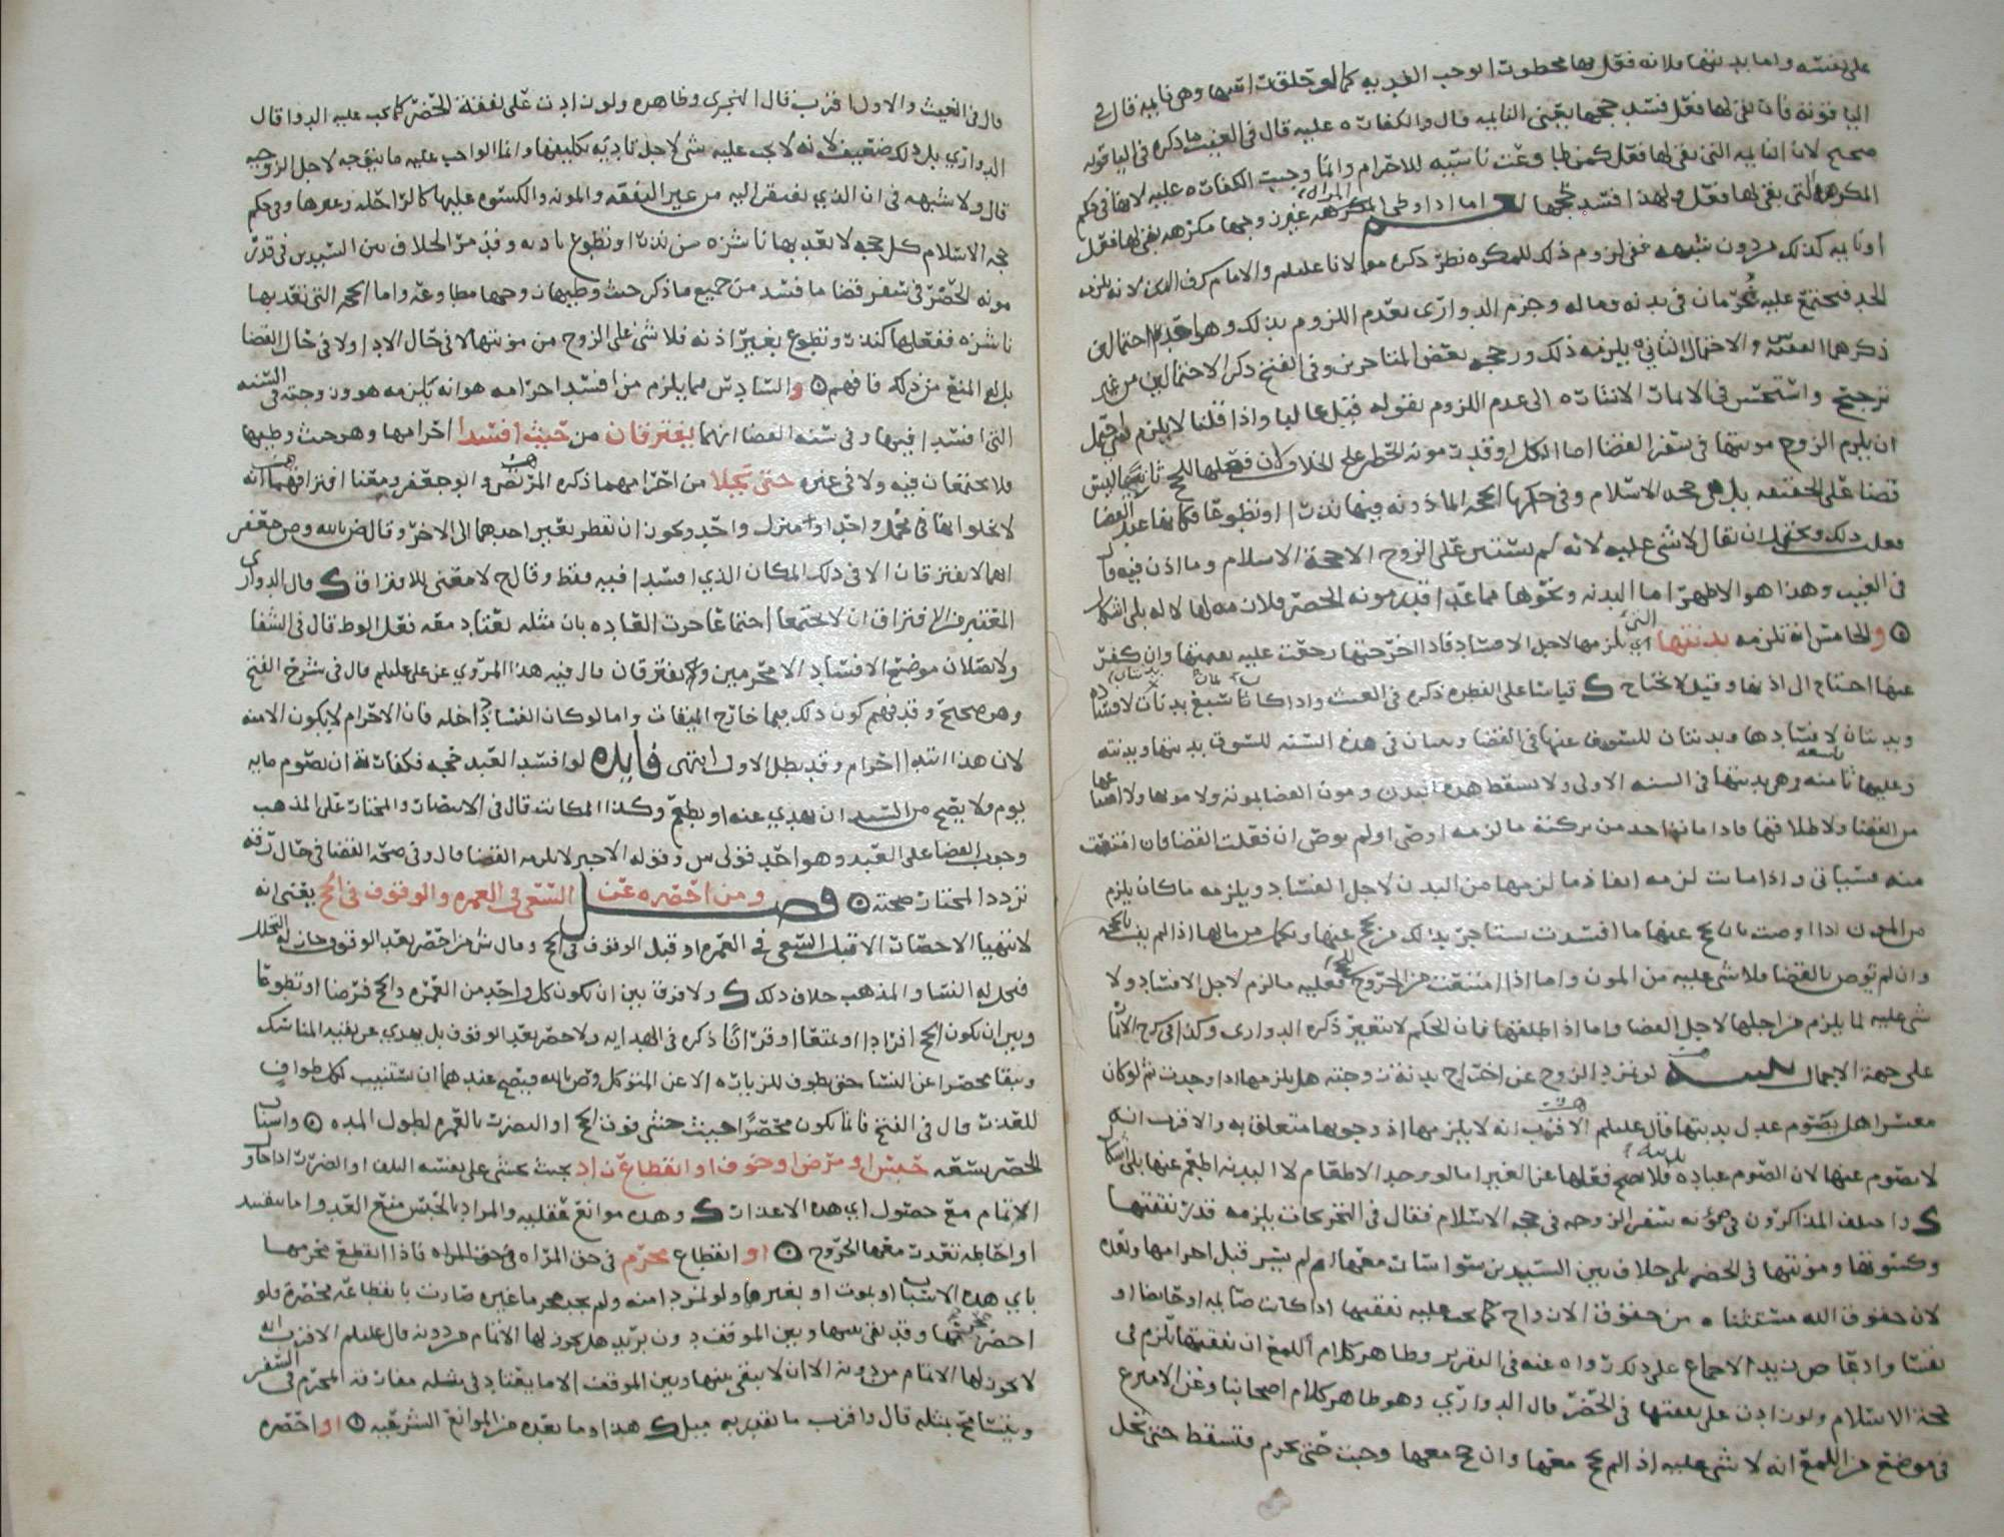 على نفسه واما بدنتها فلانه فعل بها محظورا توجب الفديه كما لو حلق راسها وهي نايمه قال في
الياقوته فان بقي لها فعل فسد حجها يعني النايمه قال والكفاره عليه قال في الغيث ما ذكره في الياقوته
صحيح لان النايمه التي بقي لها فعل كمن وعن ناسيه للاحرام وانما وجبت الكفاره عليه لانها في حكم
المكرهه التي بقي لها فعل ولهذا افسد حجها اما اذا وطى المكرهه غيره وجها مكرهه بقي لها فعل
او نايمه كذلك من دون شبهه ففي لزوم ذلك للمكره نظر ذكره مولانا عليلم والامام شرف الدين لانه يلزمه
الحد فيجتمع عليه غرمان في بدنه وماله وجزم الدواري بعدم اللزوم بذلك وهو احد احتمالين
ذكرهما الفقيه والاحتمال الثاني يلزمه ذلك ورجحه بعض المتاخرين وفي الفتح ذكر الاحتمالين من غير
ترجيح واستحسن في الاثمار الاشاره الى عدم اللزوم بقوله قيل غالبا واذا قلنا لا يلزم احتمل
ان يلزم الزوج مونتها في سفر القضا اما الكل او قدر مونه الخطر على الخلاف لان فعلها للحج ثانيا ليس
قضا على الحقيقه بل هي حجه الاسلام وفي حكمها الحجه الماذونه فيها نذرا او تطوعا فكانها عند القضا
فعلت ذلك ويحتمل ان يقال لا شي عليه لانه لم يستقر على الزوج الا حجة الاسلام وما اذن فيه قال
في الغيث وهذا هو الاظهر اما البدنه ونحوها مما عدا قدر مونه الحضر فلازمه لها لا له بلى اشكال
۞ والخامس انه تلزمه بدنتها التي تلزمها لاجل الافساد فاذا اخرجتها رجعت عليه بقيمتها وان كفر
عنها احتاج الى اذنها وقيل لا يحتاج ك قياسا على الفطره ذكره في الغيث واذا كانا سبع بدنات لافساده
وبدنتان لافسادها وبدنتان للسوق عنها في القضا وبدنتان في هذه السنه للسوق بدنتها وبدنته
وعليها ثامنه وهي بدنتها في السنه الاولى ولا يسقط هذه البدن ومون القضا لموته ولا موتها ولا امتناعها
من القضا ولا طلاقها فاذا مات اخذ من تركته ما لزمه اوصى او لم يوص ان فعلت القضا فان امتنعت
منه فسياتي واذا ماتت لزمه انفاذ ما لزمها من البدن لاجل الفساد ويلزمه ما كان يلزم
من المون اذا اوصت بان يحج عنها ما افسدت يستاجر بذلك من يحج عنها ويكمل من مالها اذا لم يف بالحجه
وان لم توص بالقضا فلا شي عليه من المون واما اذا امتنعت من الخروج للحج فعليه ما لزم لاجل الافساد ولا
شي عليه لما يلزم من اجلها لاجل القضا واما اذا طلقها فان الحكم لا يتغير ذكره الدواري وكذا في شرح الاثمار
على جهة الاجمال تنبيه لو تمرد الزوج عن اخراج بدنة زوجته هل يلزمها اذا وجدت ثم لو كان
معسرا هل يصوم عدل بدنتها قال عليلم الاقرب انه لا يلزمها اذ وجوبها متعلق به والاقرب انه
لا يصوم عنها لان الصوم عباده فلا يصح فعلها عن الغير اما لو وجد الاطعام لا البدنه اطعم عنها بلى اشكال
ك واختلف المذاكرون في مؤنه سفر الزوجه في حجه الاسلام فقال في التخريجات يلزمه قدر نفقتها
وكسوتها ومونتها في الحضر بلى خلاف بين السيدين سوا سار معها ام لم يسر قبل احرامها وبعده
لان حقوق الله مستثناه من حقوق الازواج كما تجب عليه نفقتها اذا كانت صايمه او حايضا او
نفسا وادعا ص بن زيد الاجماع على ذلك رواه عنه في التقرير وظاهر كلام اللمع ان نفقتها تلزم في
حجة الاسلام ولو زادت على نفقتها في الحضر قال الدواري وهو ظاهر كلام اصحابنا وعن الامير ع
في موضع من اللمع انه لا شي عليه اذ لم يحج معها وان حج معها وجبت حتى يحرم فتسقط حتى تحل
قال في الغيث والاول اقرب قال النجري وظاهره ولو زادت على نفقة الحضر كما تجب عليه الدوا قال
الدواري بل ذلك ضعيف لانه لا يجب عليه شي لاجل تاديه تكليفها وانما الواجب عليه ما يتوجه لاجل الزوجيه
قال ولا شبهه في ان الذي يفتقر اليه من غير النفقه والمونه والكسوه عليها كالراحله وغيرها وفي حكم
حجه الاسلام كل حجه لا تعد بها ناشزه من نذر او تطوع باذنه وقد مر الخلاف بين السيدين في قدر
مونه الحضر في سفر قضا ما فسد من جميع ما ذكر حيث وطيها زوجها مطاوعه واما الحجه التي تعد بها
ناشزه ففعلها كنذر وتطوع بغير اذنه فلا شي على الزوج من مونتها لا في حال الادا ولا في حال القضا
بل له المنع من ذلك فافهم ۞ والسادس مما يلزم من افسد احرامه هو انه يلزمه هو وزوجته في السنه
التي افسدا فيها وفي سنه القضا انهما يفترقان من حيث افسدا احرامها وهو حيث وطيها
فلا يجتمعان فيه ولا في غيره حتى يحلا من احرامهما ذكره المرتضى وابو جعفر ومعنا افتراقهما انه
لا يخلوا بها في محمل واحد او منزل واحد ويجوز ان تقطر بعير احدهما الى الاخر وقال ض بالله وص جعفر
انهما لا يفترقان الا في ذلك المكان الذي افسدا فيه فقط وقال ح لا معنى للافتراق ك قال الدواري
المعتبر في الافتراق ان لا يجتمعا اجتماعا جرت العاده بان مثله يعتاد معه فعل الوطا قال في الشفا
ولا يصلان موضع الافساد الا محرمين ولا يفترقان قال فيه هذا المروي عن علي عليلم قال في شرح الفتح
وهو صحيح وقد فهم كون ذلك فيما خارج الميقات واما لو كان الفساد داخله فان الاحرام لا يكون الا منه
لان هذا ابتدا احرام وقد بطل الاول انتهى فايده لو افسد العبد حجه فكفارته ان يصوم مايه
يوم ولا يصح من السيد ان يهدي عنه او يطعم وكذا المكاتب قال في الانتصار والمختار على المذهب
وجوب القضا على العبد وهو احد قولي ش وقوله الاخير لا يلزمه القضا قال وفي صحة القضا في حال رقه
تردد المختار صحته ۞ فصل ومن احصره عن السعي في العمره والوقوف في الحج يعني انه
لا يتهيا الاحصار الا قبل السعي في العمره او قبل الوقوف في الحج وقال ش من احصر بعد الوقوف جاز له التحلل
فتحل له النسا والمذهب خلاف ذلك ك ولا فرق بين ان تكون كل واحد من العمره والحج فرضا او تطوعا
وبين ان يكون الحج افرادا او تمتعا او قرانا ذكره في الهدايه ولا حصر بعد الوقوف بل يهدي عن بقيه المناسك
ويبقا محصرا عن النسا حتى يطوف للزياره الا عن المتوكل وض بالله فيصح عندهما ان يستنيب لكل طواف
للعذر قال في الفتح فانما يكون محصرا حيث خشي فوت الحج او التضرر بالعمره لطول المده ۞ واسباب
الحصر تسعه حبس او مرض او خوف او انقطاع زاد بحيث يخشى على نفسه التلف او الضرر اذا حاول
الاتمام مع حصول اي هذه الاعذار ك وهذه موانع عقليه والمراد بالحبس منع العدو اما بنفسه
او احاطه تعذر معها الخروج ۞ او انقطاع محرم في حق المراه في حق المراه فاذا انقطع محرمها
باي هذه الاسباب او بموت او بغيرها ولو لتمرد امنه ولم يجد محرما غيره صارت بانقطاعه محصره فلو
احصر محرمها وقد بقي بينها وبين الموقف دون بريد هل يجوز لها الاتمام من دونه قال عليلم الاقرب انه
لا يجوز لها الاتمام من دونه الا ان لا يبقى بينها وبين الموقف الا ما يعتاد في مثله مفارقه المحرم في السفر
ويتسامح بمثله قال واقرب ما تقدر به ميل ك هذا وما بعده من الموانع الشرعيه ۞ او احصره